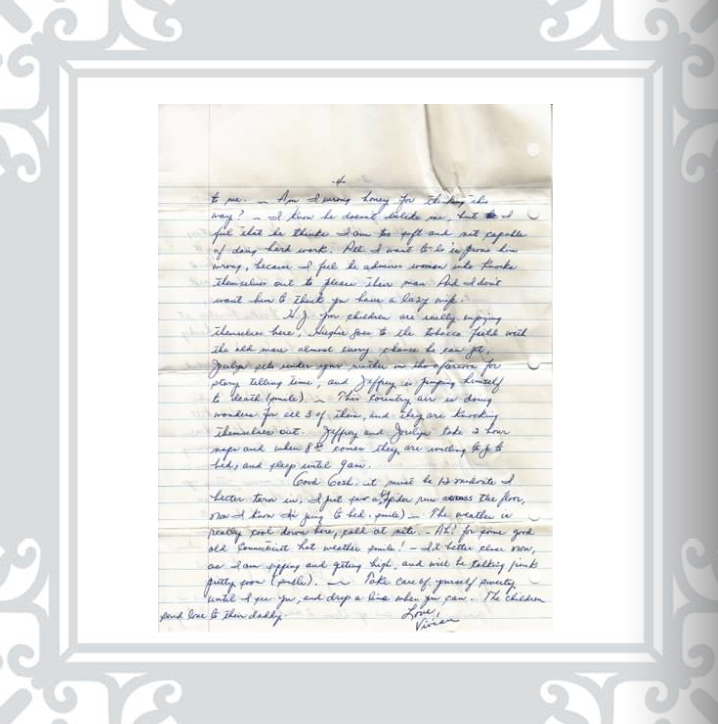 -4-
to me. — Am I wrong honey for thinking this
way? — I know he doesn't dislike me, but I
feel that he thinks I am too soft and not capable
of doing hard work. All I want to do is prove him
wrong, because I feel he admires women who knocks
themselves out to please their man. And I don't
want him to think you have a lazy wife.
H.J. your children are really enjoying
themselves here, goes to the tobacco field with
the old man almost every chance he can get,
Joslyn gets under your mother in the afternoon for
story telling time, and Jeffrey is jumping himself
to death (smile). — This country air is doing
wonders for all 3 of them, and they are knocking
themselves out. Jeffrey and Joslyn take 2 hour
naps and when 8:00 comes they are willing to go to
bed, and sleep until 9am.
Good Gosh, it must be 12 midnite I
better turn in, I just saw a big spider run across the floor,
now I know I'm going to bed. smile) — The weather is
really cool down here, cold at nite. — Ah! for some good
old Connecticut hot weather smile! — I'd better close now,
as I am sipping and getting high, and will be talking junk
pretty soon (smile). — Take care of yourself sweety,
until I see you, and drop a line when you can. The children
send love to their daddy.
Love,
Vivian